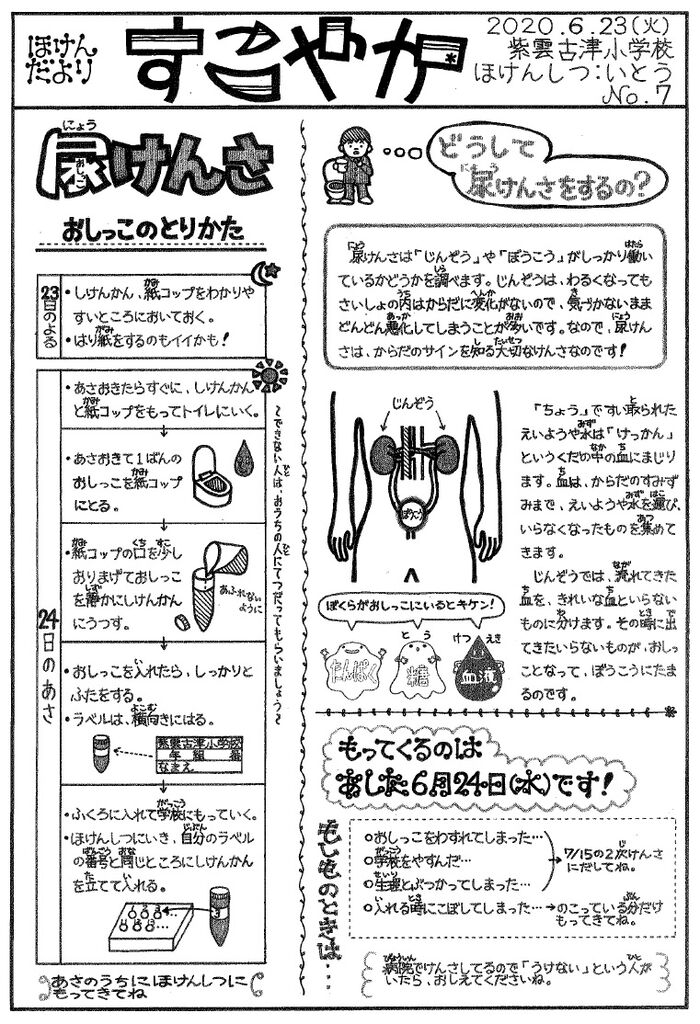 ほけん
だより
すこやか
2020.6.23(火)
紫雲古津小学校
ほけんしつ:いとう
No.7
にょう
尿けんさ
おしっこ
おしっこのとりかた
23日のよる
・しけんかん、紙コップをわかりや
すいところにおいておく。
・はり紙をするのもイイかも!
24日のあさ
・あさおきたらすぐに、しけんかん
と紙コップをもってトイレにいく。
・あさおきて1ばんの
おしっこを紙コップ
にとる。
・紙コップの口を少し
おりまげておしっこ
を静かにしけんかん
にうつす。
あふれない
ように
・おしっこを入れたら、しっかりと
ふたをする。
・ラベルは、横向きにはる。
紫雲古津小学校
年 組 番
なまえ
・ふくろに入れて学校にもっていく。
・ほけんしつにいき、自分のラベル
の番号と同じところにしけんかん
を立てて入れる。
あさのうちに、ほけんしつに
もってきてね
~できない人は、おうちの人にてつだってもらいましょう~
どうして
尿けんさをするの?
尿けんさは「じんぞう」や「ぼうこう」がしっかり働い
ているかどうかを調べます。じんぞうは、わるくなっても
さいしょの内はからだに変化がないので、気づかないまま
どんどん悪化してしまうことが多いです。なので、尿けん
さは、からだのサインを知る大切なけんさなのです!
じんぞう
ぼうこう
「ちょう」ですい取られた
えいようや水は「けっかん」
というくだの中の血にまじり
ます。血は、からだのすみず
みまで、えいようや水を運び、
いらなくなったものを集めて
きます。
じんぞうでは、流れてきた
血を、きれいな血といらない
ものに分けます。その時に出
てきたいらないものが、おしっ
ことなって、ぼうこうにたま
るのです。
ぼくらがおしっこにいるとキケン!
たんぱく
とう
糖
けつ えき
血液
もってくるのは
あした6月24日(水)です!
もしものときは…
○おしっこをわすれてしまった…
○学校をやすんだ…
○生理とぶつかってしまった…
→7/15の2次けんさ
にだしてね。
○入れる時にこぼしてしまった…→のこっている分だけ
もってきてね。
病院でけんさしてるので「うけない」という人が
いたら、おしえてくださいね。